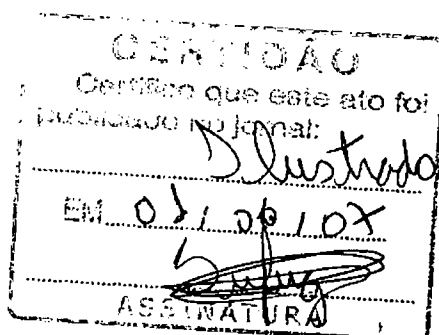 CERTIDÃO
Certifico que este ato foi
publicado no jornal:
Ilustrado
EM
ASSINATURA